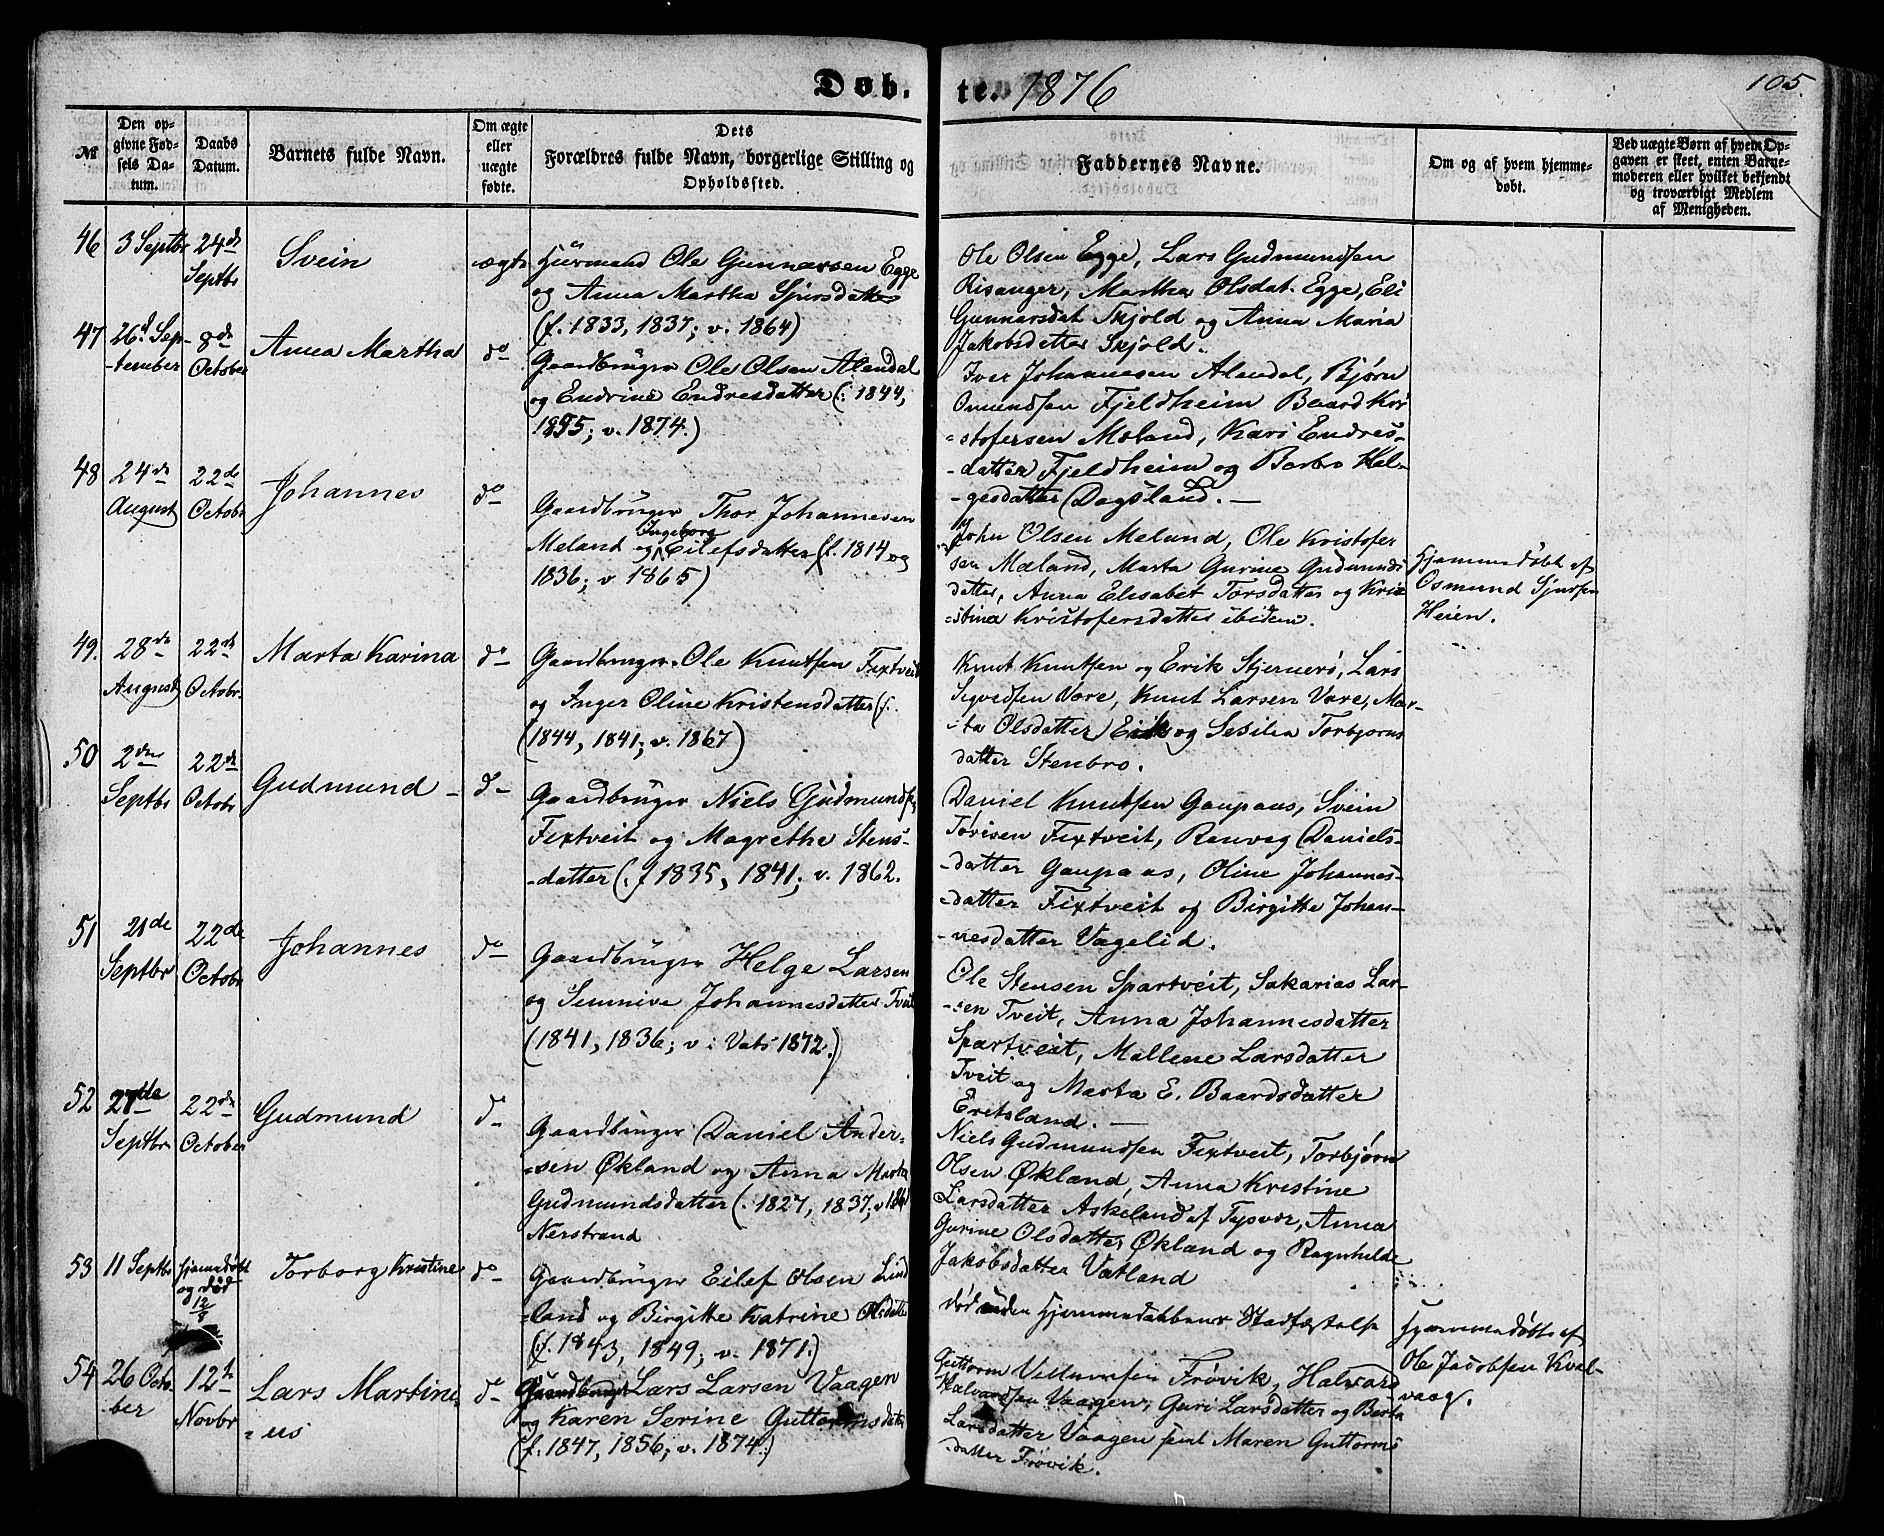 Døb. te. 1876
105.
№
Den opgivne Fødsels Datum.
Daabs Datum.
Barnets fulde Navn.
Om ægte eller uægte fødte.
Dets Forældres fulde Navn, borgerlige Stilling og Opholdssted.
Faddernes Navne.
Om og af hvem hjemmedøbt.
Ved uægte Børn af hvem Opgaven er skeet, enten Barnemoderen eller hvilket bekjendt og troværdigt Medlem af Menigheden.
46
3 Septbr
24de
Septbr
Svein
ægte
Huusmand Ole Gunnarsen Egge
og Anna Martha Sjursdatter
(f. 1833, 1837; v. 1864)
Ole Olsen Egge, Lars Gudmundsen
Risanger, Martha Olsdat. Egge, Eli
Gunnarsdat Skjold og Anna Maria
Jakobsdatter Skjold.
47
26d. Sep-
-tember
8de
October
Anna Martha
do
Gaardbruger Ole Olsen Alendal
og Endrine Endresdatter (: 1844,
1855; v. 1874.)
Iver Johannesen Alendal, Bjørn
Omundsen Fjeldheim Baard Kri
=stofersen Mæland, Kari Endres-
-datter Fjeldheim og Barbro Hel-
-gesdatter Dagsland. —
48
24de
August
22de
Octobr
Johannes
do
Gaardbruger Thor Johannesen
Meland og Ingeborg Eilefsdatter (f. 1814 og
1836; v. 1865)
John Olsen Meland, Ole Kristofer
sen Mæland, Marta Gurine Gudmunds
datter, Anna Elisabet Torsdatter og Kri=
=stina Kristofersdatter ibidem.
Hjemmedøbt af
Osmund Sjursen
Heien.
49.
28de
August
22de
Octobr.
Marta Karina
do
Gaardbruger Ole Knutsen Fixtveit
og Inger Oline Kristensdatter (f.
(1844, 1841; v. 1867)
Knut Knutsen og Erik Stjernerö, Lars
Sigvedsen Vare, Knut Larsen Vare, Mar-
-ta Olsdatter Eik og Sesilia Torbjørns
datter Stenbro.
50
2den
Septbr
22de
Octobr
Gudmund
do
Gaardbruger Niels Gudmundsen
Fixtveit og Magrethe Stens-
-datter (. f 1835, 1841; v. 1862.
Daniel Knutsen Gaupaas, Svein
Tørisen Fixtveit, Ranveg Daniels-
-datter Gaupaas, Oline Johannes-
-datter Fixtveit og Birgitte Johan-
-nesdatter Vagelid.
51
21de
Septbr
22de
Octobr
Johannes
do
Gaardbruger Helge Larsen
og Sunneve Johannesdatter Tveit
(1841, 1836; v: Vats 1872.)
Ole Stensen Spartveit, Sakarias Lar-
-sen Tveit, Anna Johannesdatter
Spartveit, Mallene Larsdatter
Tveit og Marta E. Baardsdatter
Eritsland. —
52
27de
Septbr
22de
October
Gudmund
do
Gaardbruger Daniel Ander-
-sen Økland og Anna Marta
Gudmundsdatter (. 1827, 1837; v 186
Nerstrand
Niels Gudmundsen Fixtveit, Torbjørn
Olsen Økland, Anna Kristine
Larsdatter Askeland af Tysvær, Anna
Gurine Olsdatter Økland og Ragnhilde
Jakobsdatter Vatland
53
11 Septbr
hjemmedøbt
og død
12/9
Torborg Kristine
do
Gaardbruger Eilef Olsen Lind
-land og Birgitte Katrine Olsdatter
(f. 1843, 1849; v. 1871.)
død uden Hjemmedaabens Stadfæstelse
Hjemmedøbt af
Ole Jacobsen Kval-
vaag.
54
26 Octo-
-ber
12te
Novbr
Lars Martine
=us
do
Gaardbruger Lars Larsen Vaagen
og Karen Serine Guttormsdatter
(f. 1847, 1856; v. 1874.)
Guttorm Villumsen Frøvik, Halvard
Halvardsen Vaagen, Guri Larsdatter og Berta
Larsdatter Vaagen samt Maren Guttorms
-datter Frøvik.